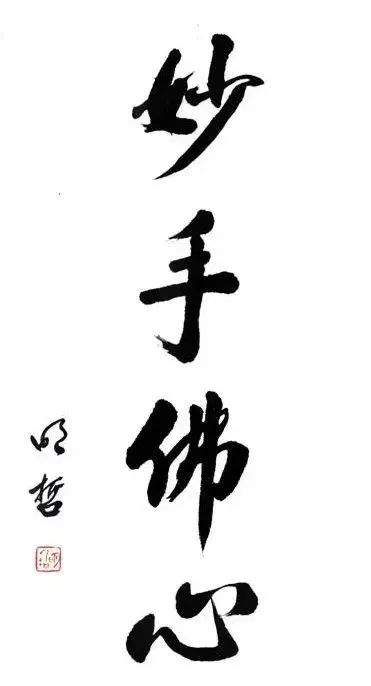 妙手佛心
明哲